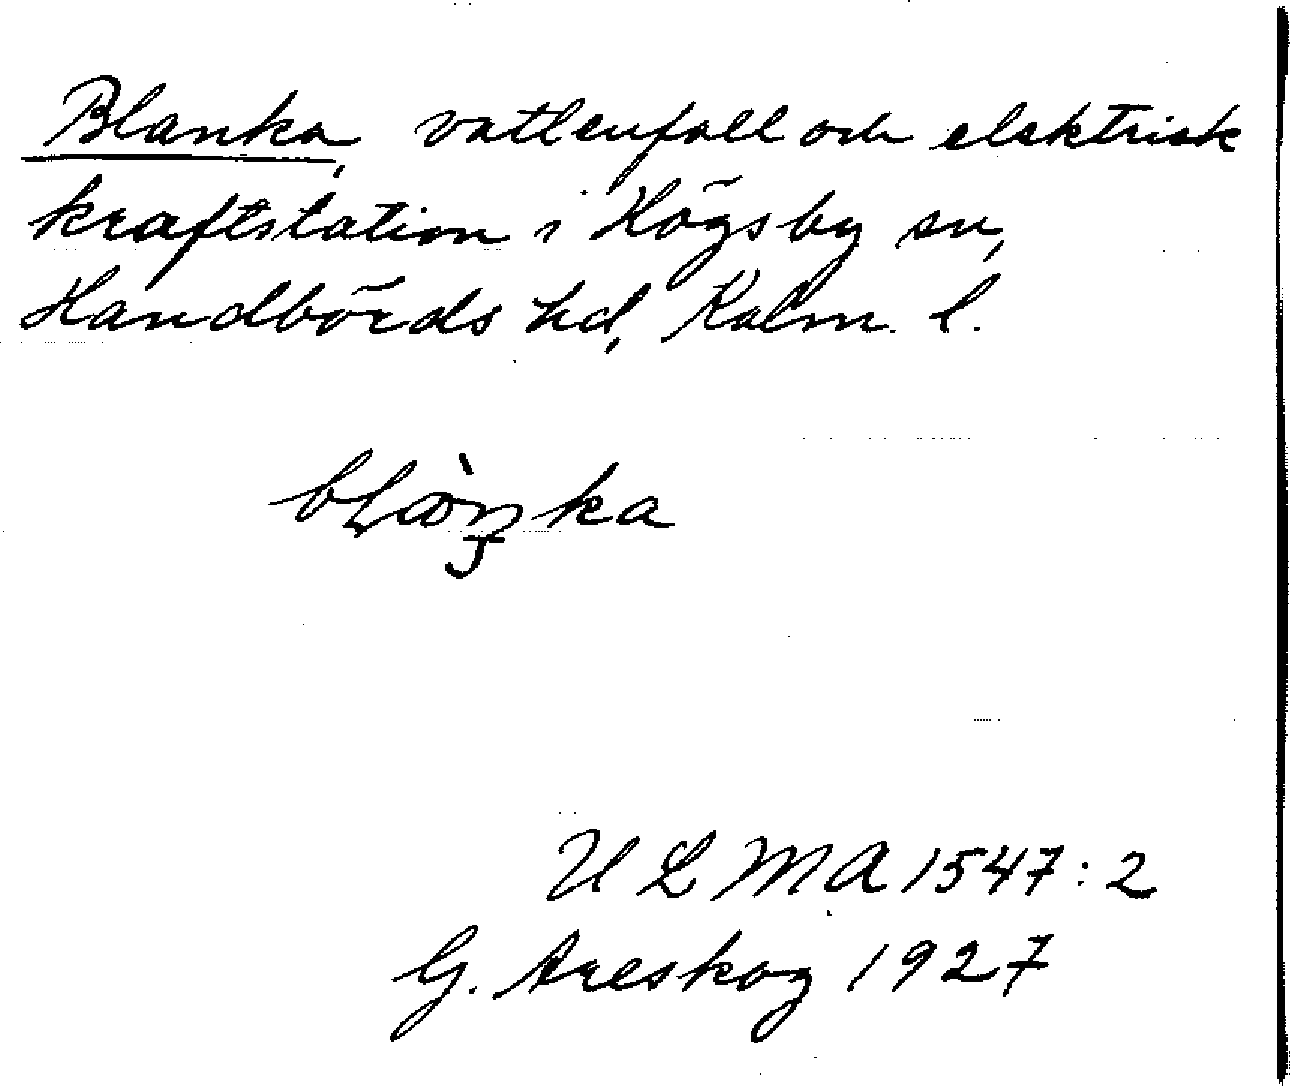 Blanka, vattenfall och elektrisk
kraftstation i Högsby sn,
Handbörds hd, Kalm. l.
ULMA 1547:2
G. Areskog 1927